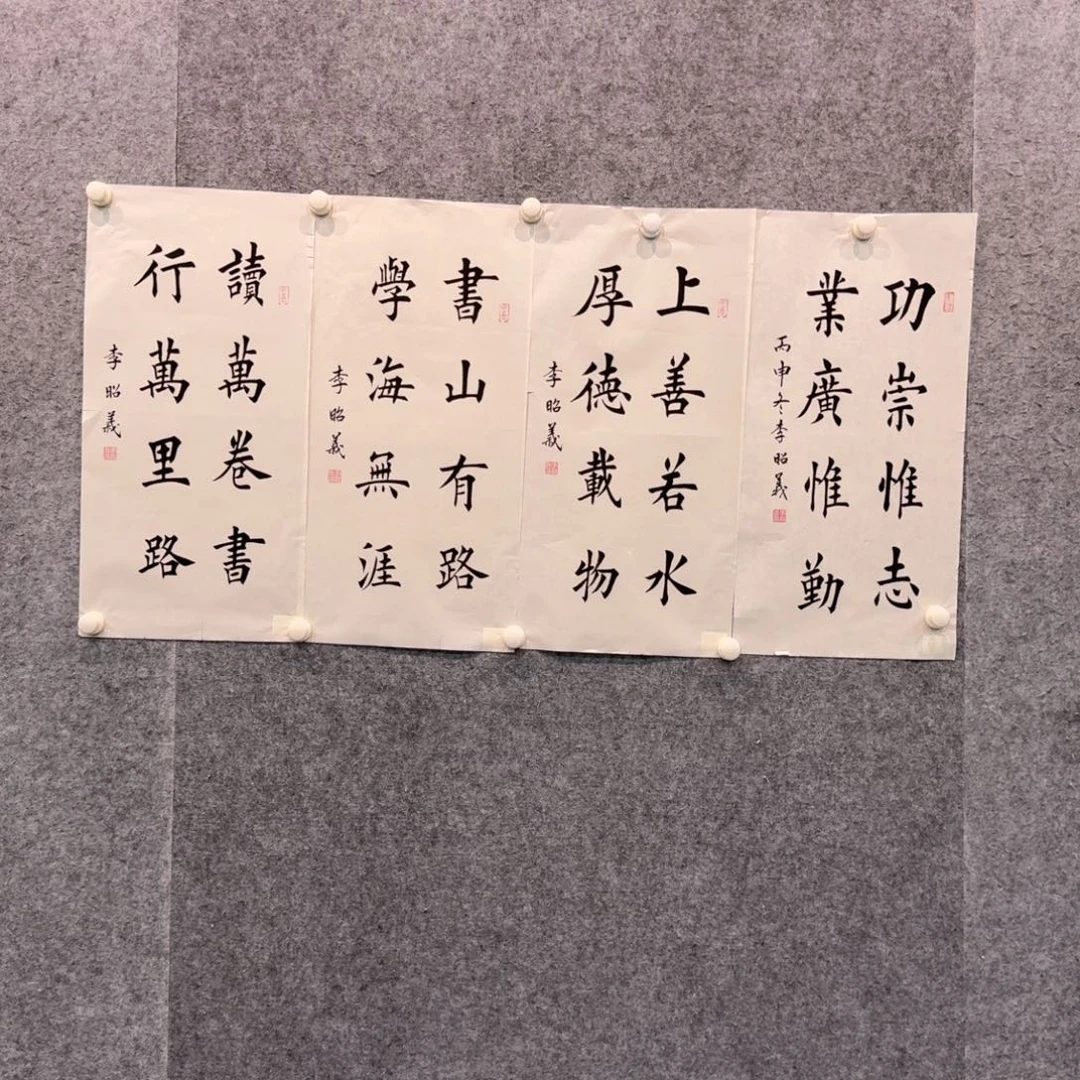 功崇惟志
業廣惟勤
丙申冬李昭義
上善若水
厚德載物
李昭義
書山有路
學海無涯
李昭義
讀萬卷書
行萬里路
李昭義